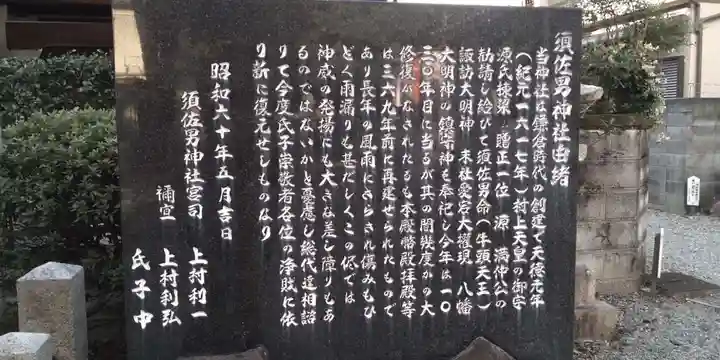 須佐男神社由緒
当神社は鎌倉時代の創建で天徳元年
(紀元一六一七年)村上天皇の御宇
源氏棟梁 贈正一位 源 満仲公の
勧請し給ひて須佐男命(牛頭天王)
諏訪大明神 末社愛宕大権現 八幡
大明神の鎮守神を奉祀し今年は一〇
三〇年目に当るが其の間幾度かの大
修復がなされたるも本殿幣殿拝殿等
は三六九年前に再建せられたもので
あり長年の風雨にさらされ傷みもひ
どく雨漏りも甚だしくこの侭では
神威の発揚にも大きな差し障りもあ
るのではないかと憂慮し総代達相談
りて今度氏子崇敬者各位の浄財に依
り新に復元せしものなり
昭和六十年五月吉日
須佐男神社宮司 上村利一
禰宜 上村利弘
氏子中